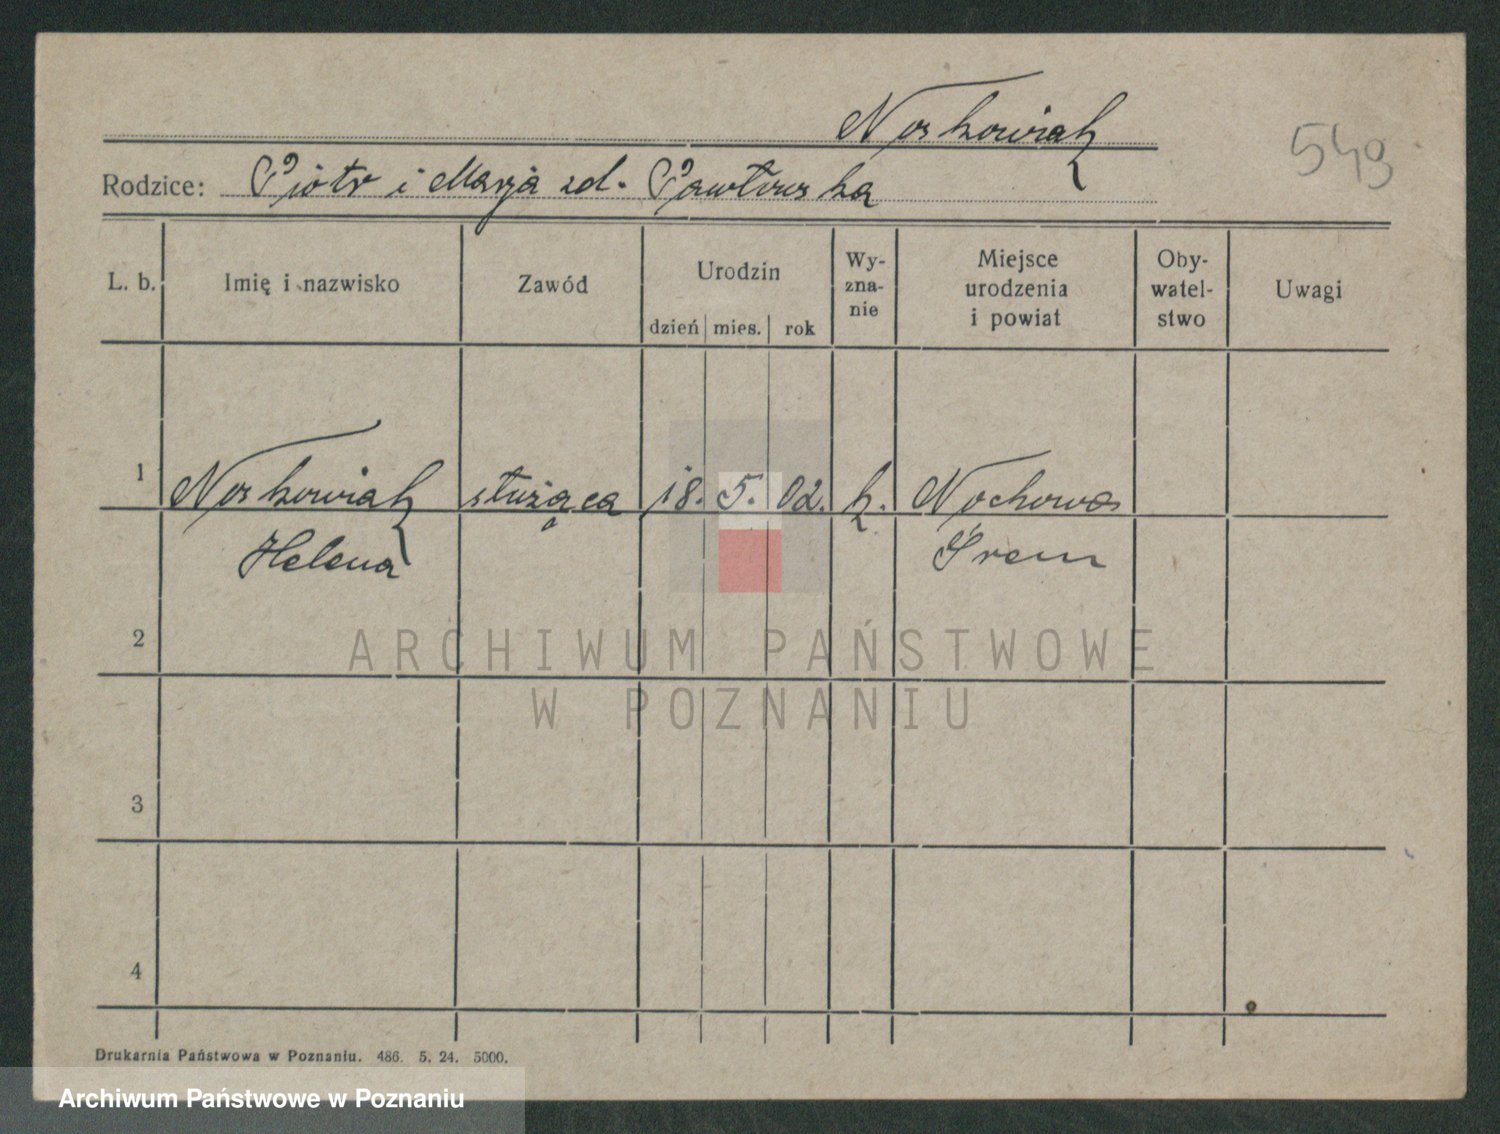 Noskowiak
549
Rodzice: Piotr i Marja zd. Pawłowska
L. b. Imię i nazwisko Zawód Urodzin dzień mies. rok Wy-zna-nie Miejsce urodzenia i powiat Oby-watel-stwo Uwagi
1 Noskowiak służąca 18. 5. 02. k. Nochowo
Helena Śrem
2
ARCHIWUM PAŃSTWOWE
W POZNANIU
3
4
Drukarnia Państwowa w Poznaniu. 486. 5. 24. 5000.
Archiwum Państwowe w Poznaniu